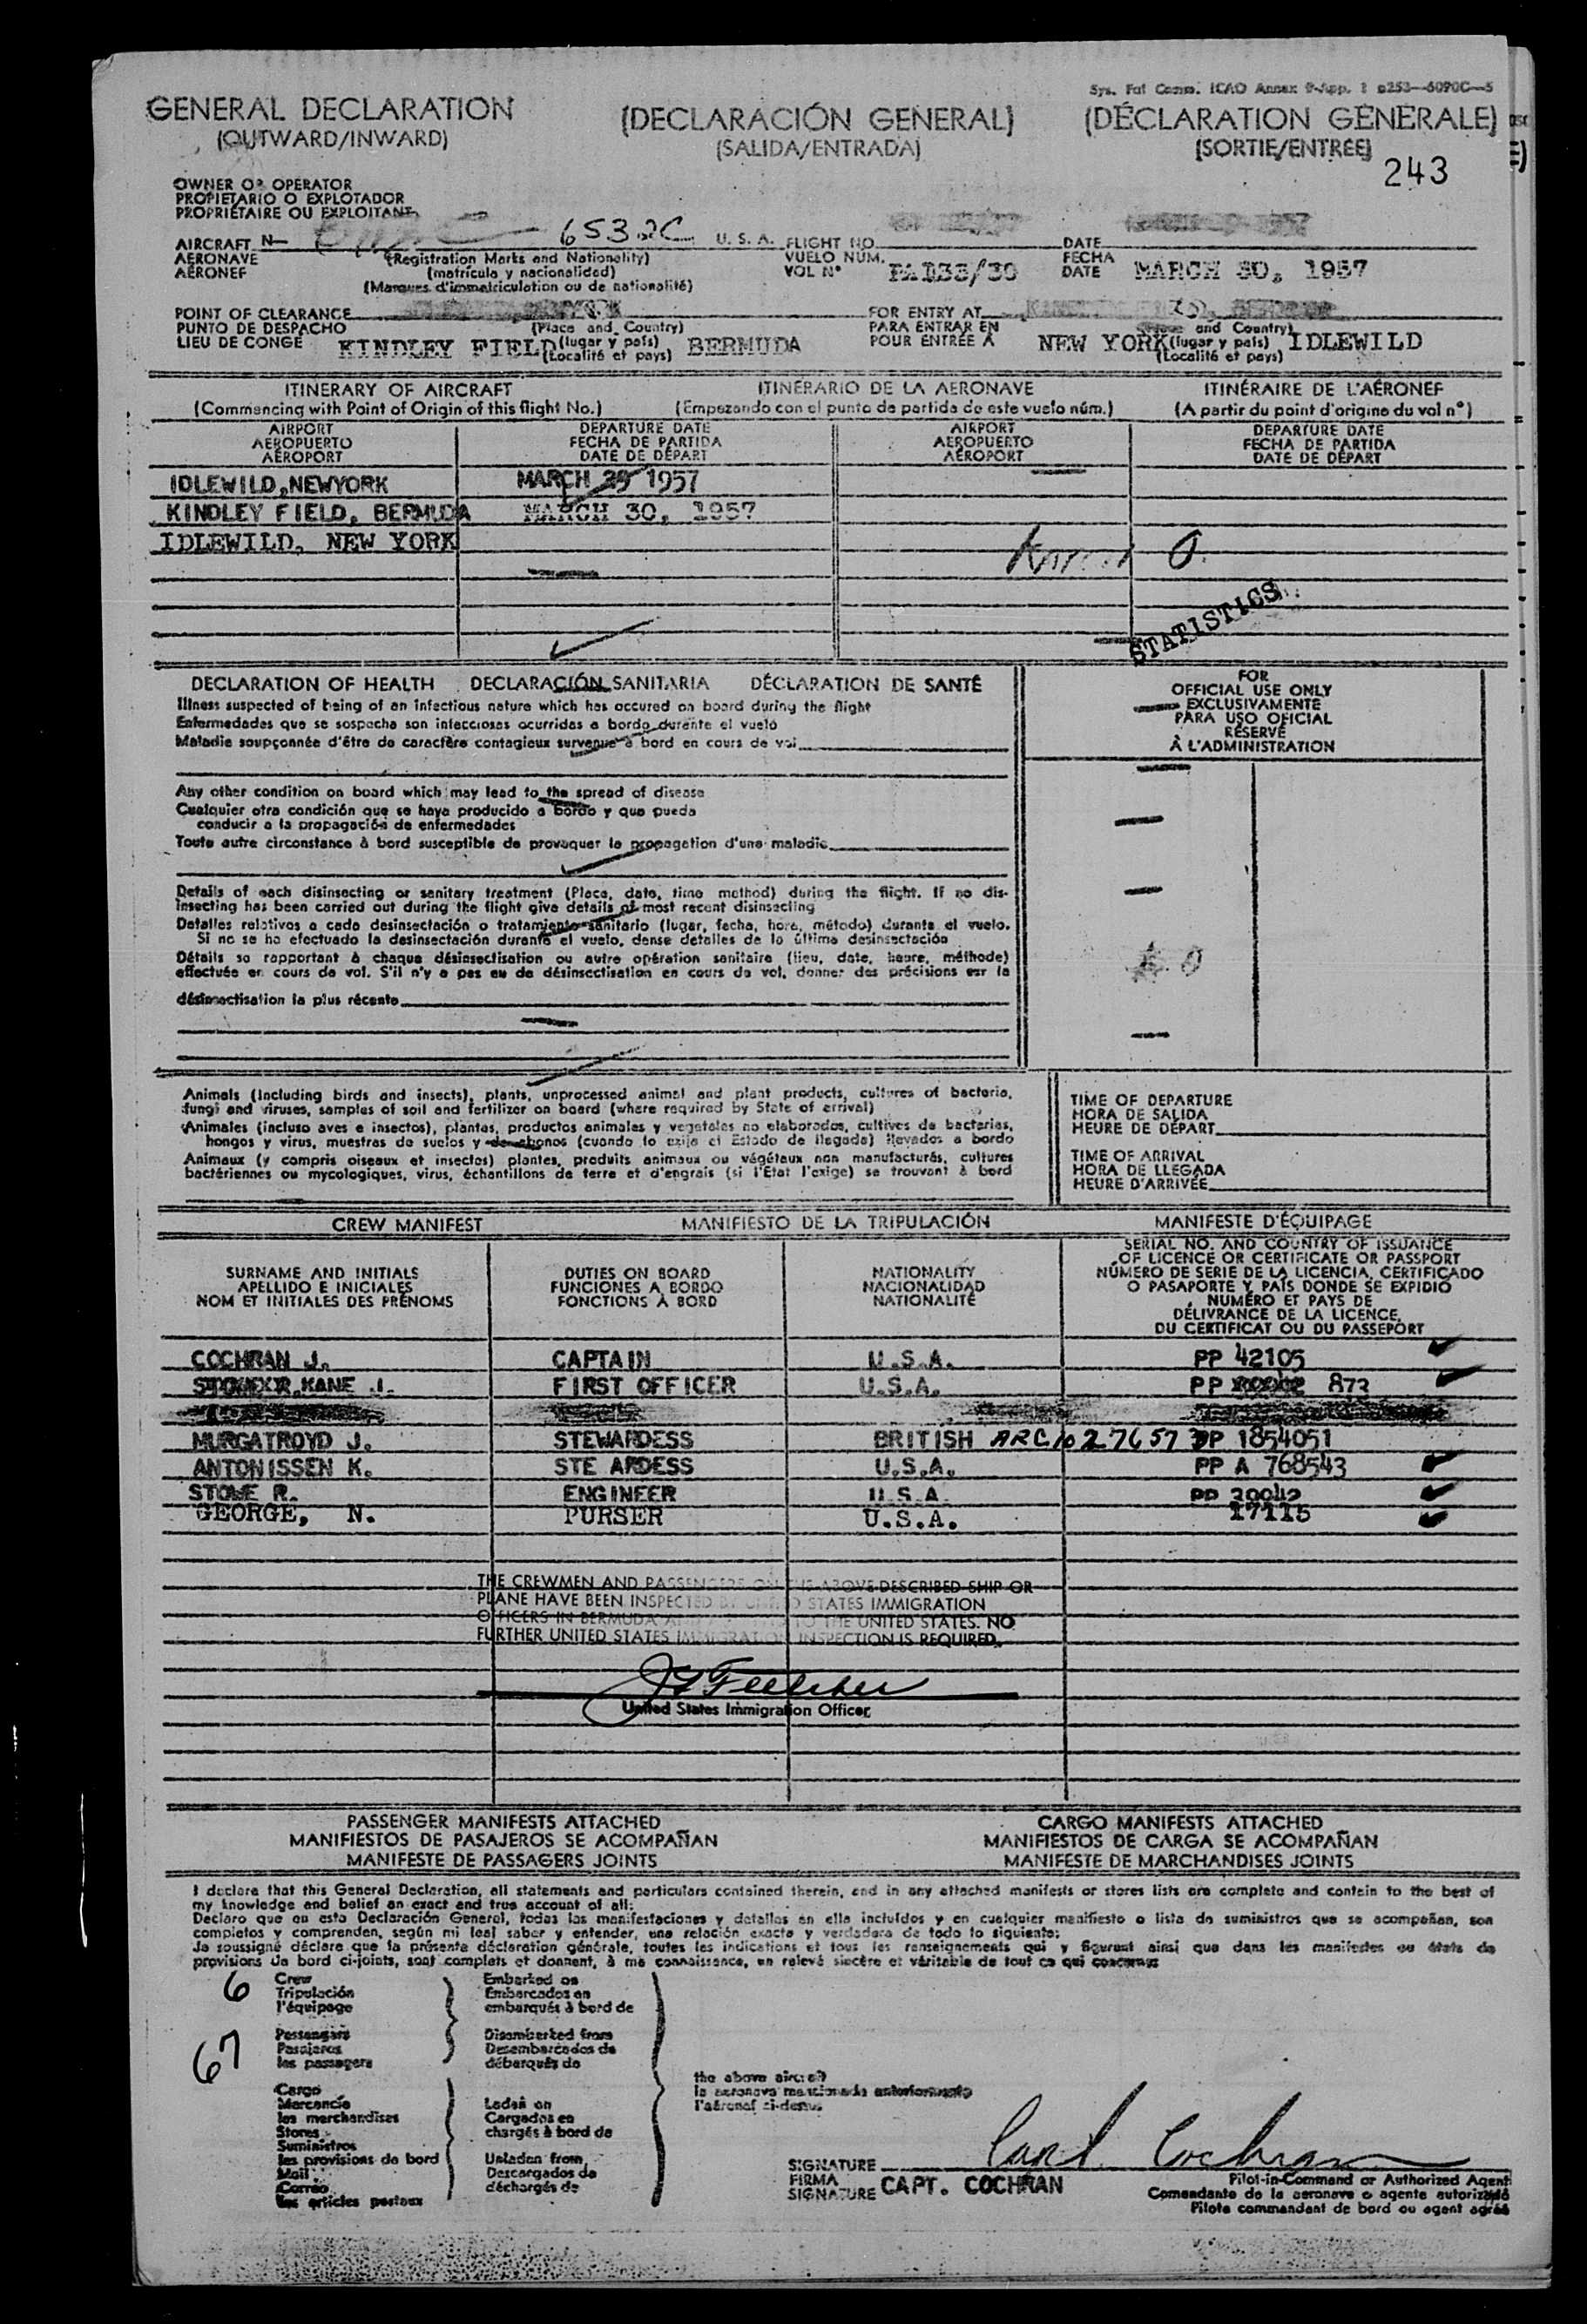 Sys. Fal Comm. ICAO Annex 9-App. 1 g253—6090C—5
GENERAL DECLARATION (DECLARACIÓN GENERAL) (DÉCLARATION GÉNÉRALE)
(OUTWARD/INWARD) (SALIDA/ENTRADA) (SORTIE/ENTRÉE)
243
OWNER OR OPERATOR
PROPIETARIO O EXPLOTADOR
PROPRIÉTAIRE OU EXPLOITANT
AIRCRAFT N— 6532C U. S. A. FLIGHT NO. DATE
AERONAVE (Registration Marks and Nationality) VUELO NÚM. FECHA
AÉRONEF (matrícula y nacionalidad) VOL N° PA133/30 DATE MARCH 30, 1957
(Marques d'immatriculation ou de nationalité)
POINT OF CLEARANCE FOR ENTRY AT
PUNTO DE DESPACHO (Place and Country) PARA ENTRAR EN and Country)
LIEU DE CONGÉ KINDLEY FIELD (lugar y país) BERMUDA POUR ENTRÉE À NEW YORK (lugar y país) IDLEWILD
(Localité et pays) (Localité et pays)
ITINERARY OF AIRCRAFT ITINERARIO DE LA AERONAVE ITINÉRAIRE DE L'AÉRONEF
(Commencing with Point of Origin of this flight No.) (Empezando con el punto de partida de este vuelo núm.) (A partir du point d'origine du vol n°)
AIRPORT DEPARTURE DATE AIRPORT DEPARTURE DATE
AEROPUERTO FECHA DE PARTIDA AEROPUERTO FECHA DE PARTIDA
AÉROPORT DATE DE DÉPART AÉROPORT DATE DE DÉPART
IDLEWILD,NEWYORK MARCH 1957
KINDLEY FIELD, BERMUDA MARCH 30, 1957
IDLEWILD, NEW YORK
STATISTICS
DECLARATION OF HEALTH DECLARACIÓN SANITARIA DÉCLARATION DE SANTÉ
Illness suspected of being of an infectious nature which has occured on board during the flight
Enfermedades que se sospecha son infecciosas ocurridas a bordo durante el vuelo
Maladie soupçonnée d'être de caractère contagieux survenue à bord en cours de vol
FOR
OFFICIAL USE ONLY
EXCLUSIVAMENTE
PARA USO OFICIAL
RÉSERVÉ
À L'ADMINISTRATION
Any other condition on board which may lead to the spread of disease
Cualquier otra condición que se haya producido a bordo y que pueda
conducir a la propagación de enfermedades
Toute autre circonstance à bord susceptible de provoquer la propagation d'une maladie
Details of each disinsecting or sanitary treatment (Place, date, time method) during the flight. If no dis-
insecting has been carried out during the flight give details of most recent disinsecting
Detalles relativos a cada desinsectación o tratamiento sanitario (lugar, fecha, hora, método) durante el vuelo.
Si no se ha efectuado la desinsectación durante el vuelo, dense detalles de la última desinsectación
Détails se rapportant à chaque désinsectisation ou autre opération sanitaire (lieu, date, heure, méthode)
effectuée en cours de vol. S'il n'y a pas eu de désinsectisation en cours de vol, donner des précisions sur la
désinsectisation la plus récente
Animals (Including birds and insects), plants, unprocessed animal and plant products, cultures of bacteria,
fungi and viruses, samples of soil and fertilizer on board (where required by State of arrival)
Animales (incluso aves e insectos), plantas, productos animales y vegetales no elaborados, cultivos de bacterias,
hongos y virus, muestras de suelos y de abonos (cuando lo exija el Estado de llegada) llevados a bordo
Animaux (y compris oiseaux et insectes) plantes, produits animaux ou végétaux non manufacturés, cultures
bactériennes ou mycologiques, virus, échantillons de terre et d'engrais (si l'Etat l'exige) se trouvant à bord
TIME OF DEPARTURE
HORA DE SALIDA
HEURE DE DÉPART
TIME OF ARRIVAL
HORA DE LLEGADA
HEURE D'ARRIVÉE
CREW MANIFEST MANIFIESTO DE LA TRIPULACIÓN MANIFESTE D'ÉQUIPAGE
SURNAME AND INITIALS
APELLIDO E INICIALES
NOM ET INITIALES DES PRÉNOMS
DUTIES ON BOARD
FUNCIONES A BORDO
FONCTIONS À BORD
NATIONALITY
NACIONALIDAD
NATIONALITÉ
SERIAL NO. AND COUNTRY OF ISSUANCE
OF LICENCE OR CERTIFICATE OR PASSPORT
NÚMERO DE SERIE DE LA LICENCIA, CERTIFICADO
O PASAPORTE Y PAÍS DONDE SE EXPIDIÓ
NUMÉRO ET PAYS DE
DÉLIVRANCE DE LA LICENCE,
DU CERTIFICAT OU DU PASSEPORT
COCHRAN J. CAPTAIN U.S.A. PP 42105
KANE J. FIRST OFFICER U.S.A. PP 873
MURGATROYD J. STEWARDESS BRITISH ARC 10276573 PP 1854051
ANTONISSEN K. STE ARDESS U.S.A. PP A 768543
STOWE R. ENGINEER U.S.A. PP 20042
GEORGE, N. PURSER U.S.A. 17115
THE CREWMEN AND PASSENGERS ON THE ABOVE DESCRIBED SHIP OR
PLANE HAVE BEEN INSPECTED BY UNITED STATES IMMIGRATION
OFFICERS IN BERMUDA TO THE UNITED STATES. NO
FURTHER UNITED STATES IMMIGRATION INSPECTION IS REQUIRED.
United States Immigration Officer
PASSENGER MANIFESTS ATTACHED CARGO MANIFESTS ATTACHED
MANIFIESTOS DE PASAJEROS SE ACOMPAÑAN MANIFIESTOS DE CARGA SE ACOMPAÑAN
MANIFESTE DE PASSAGERS JOINTS MANIFESTE DE MARCHANDISES JOINTS
I declare that this General Declaration, all statements and particulars contained therein, and in any attached manifests or stores lists are complete and contain to the best of
my knowledge and belief an exact and true account of all:
Declaro que en esta Declaración General, todas las manifestaciones y detalles en ella incluídos y en cualquier manifiesto o lista de suministros que se acompañan, son
completos y comprenden, según mi leal saber y entender, una relación exacta y verdadera de todo lo siguiente:
Je soussigné déclare que la présente déclaration générale, toutes les indications et tous les renseignements qui y figurent ainsi que dans les manifestes ou états de
provisions de bord ci-joints, sont complets et donnent, à ma connaissance, un relevé sincère et véritable de tout ce qui concerne
6 Crew
Tripulación
l'équipage
67 Passengers
Pasajeros
les passagers
Embarked on
Embarcados en
embarqués à bord de
Disembarked from
Desembarcados de
débarqués de
Cargo
Mercancía
les marchandises
Stores
Suministros
les provisions de bord
Mail
Correo
les articles postaux
Laden on
Cargados en
chargés à bord de
Unladen from
Descargados de
déchargés de
the above aircraft
la aeronave mencionada anteriormente
l'aéronef ci-dessus
SIGNATURE Carl Cochran
FIRMA CAPT. COCHRAN
SIGNATURE
Pilot-in-Command or Authorized Agent
Comandante de la aeronave o agente autorizado
Pilote commandant de bord ou agent agréé